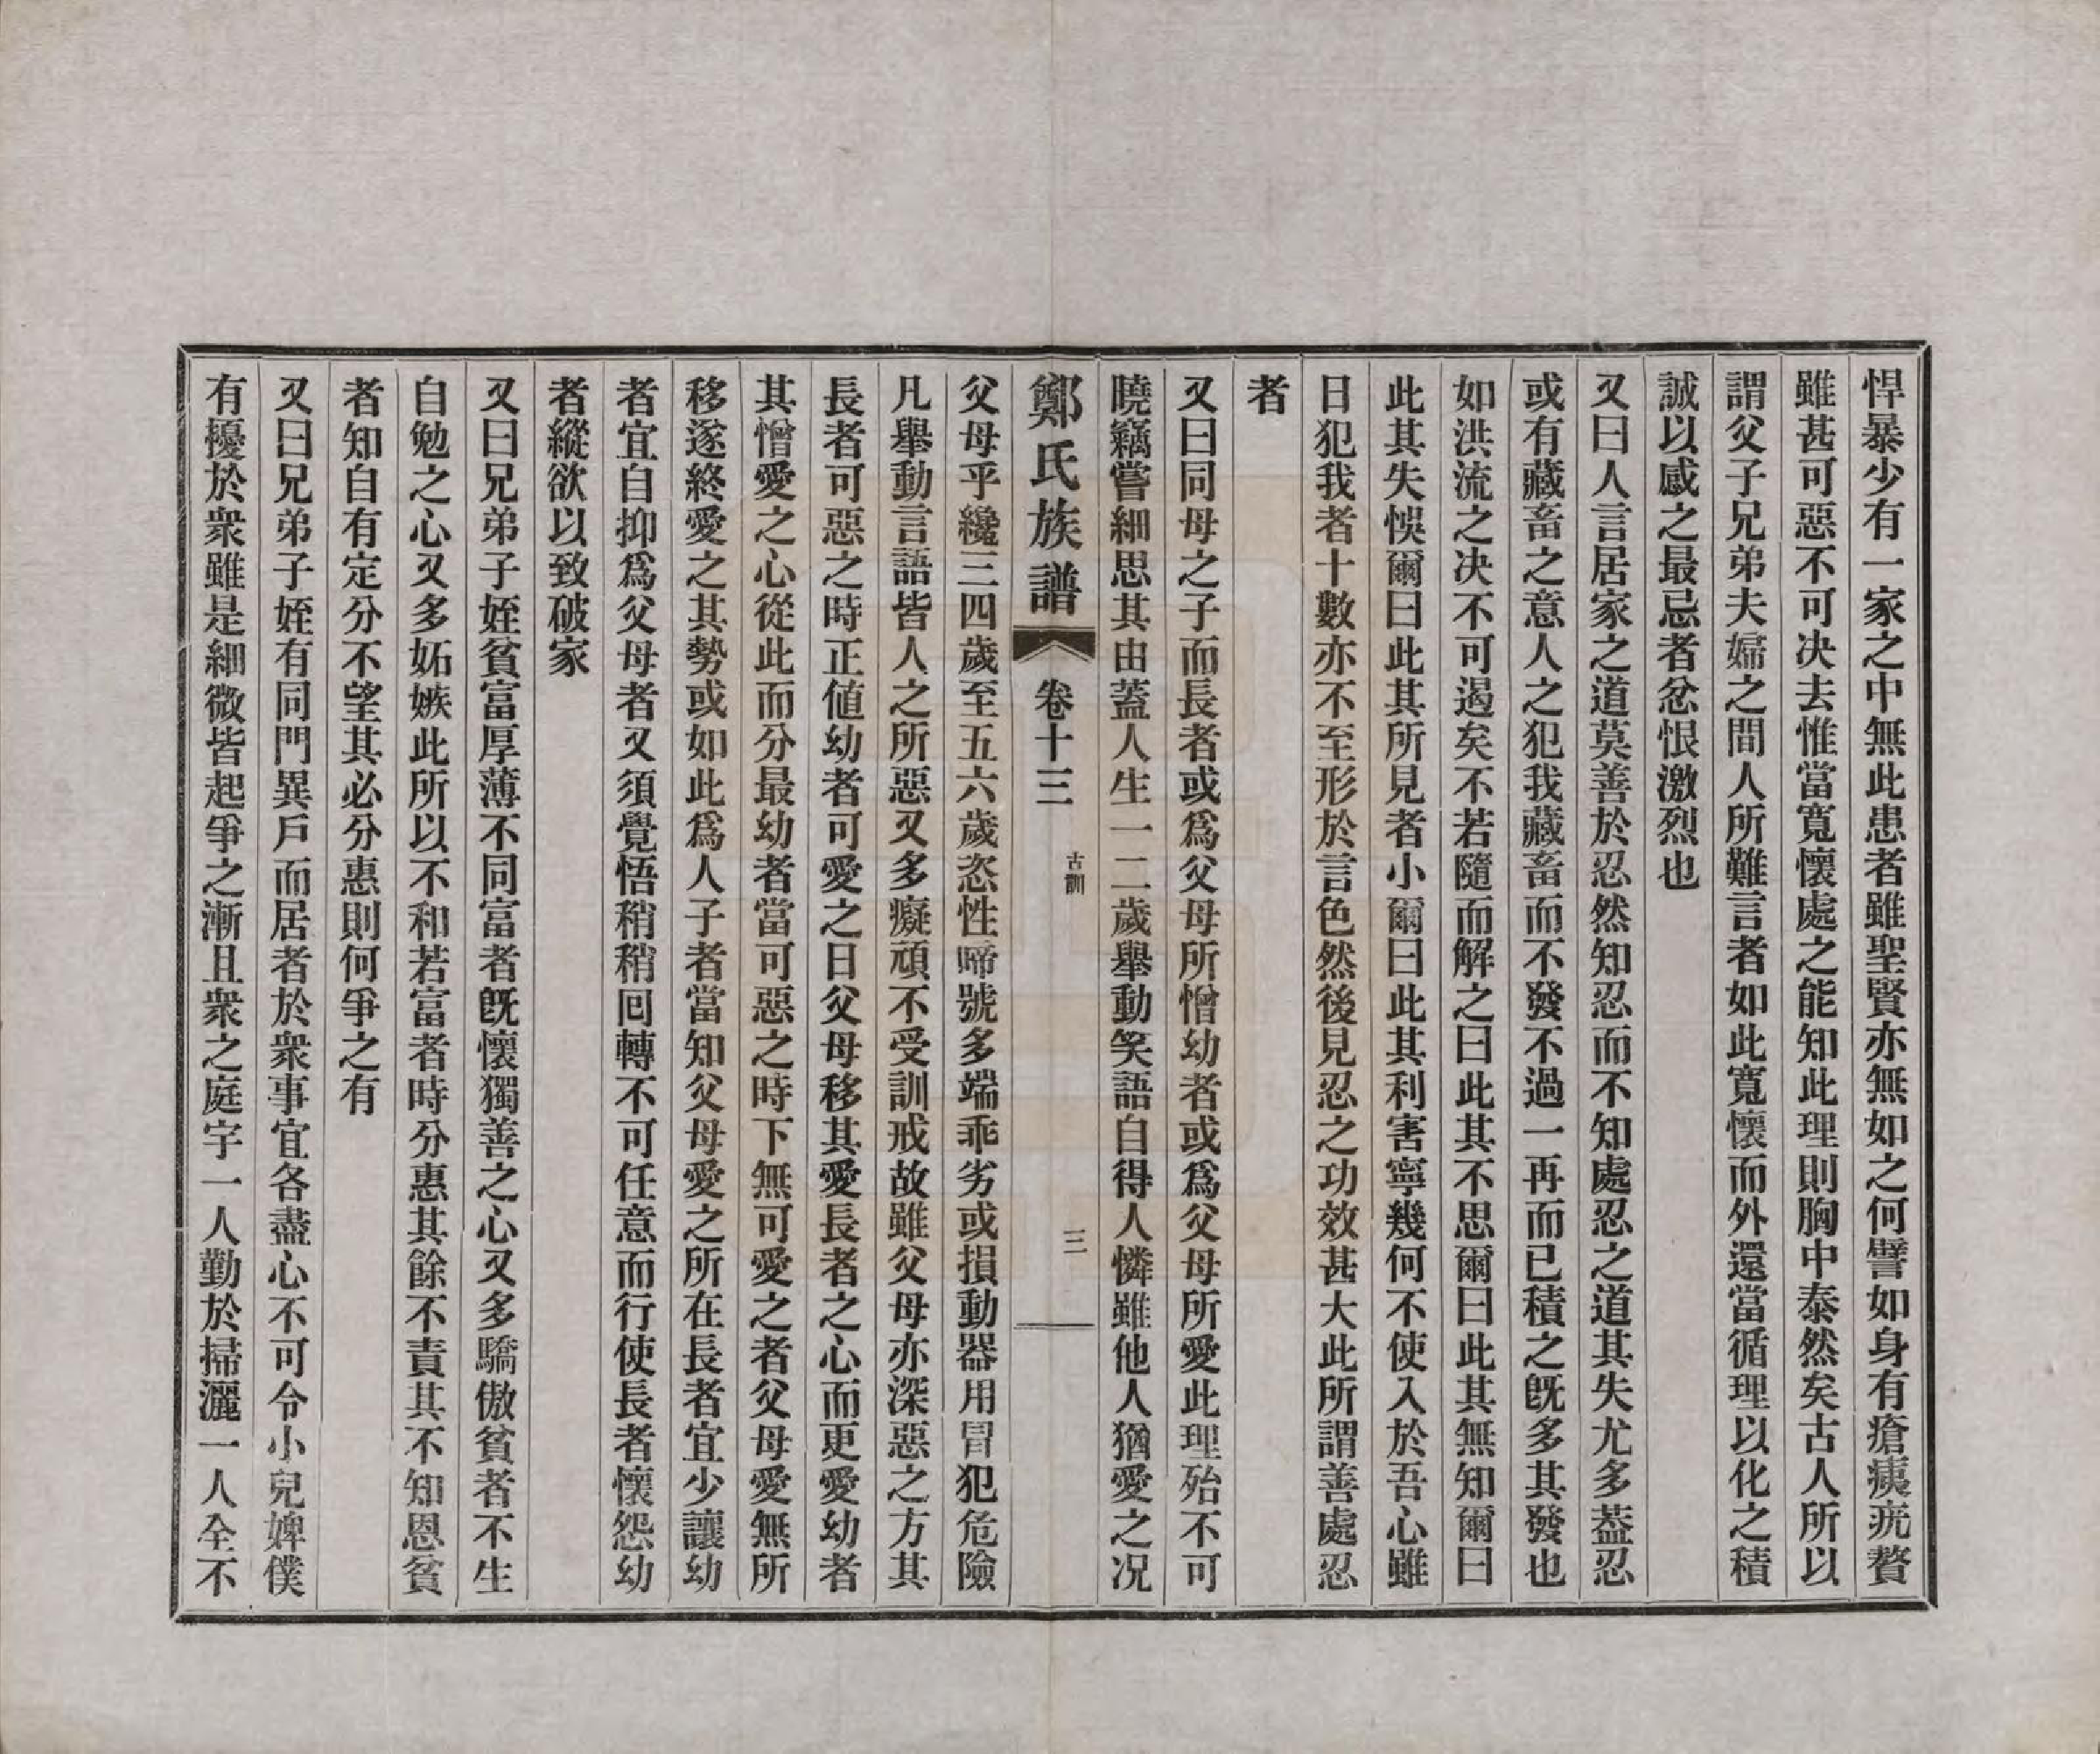 悍暴少有一家之中無此患者雖聖賢亦無如之何譬如身有瘡痍疣贅
雖甚可惡不可决去惟當寬懷處之能知此理則胸中泰然矣古人所以
謂父子兄弟夫婦之間人所難言者如此寬懷而外還當循理以化之積
誠以感之最忌者忿恨激烈也
又曰人言居家之道莫善於忍然知忍而不知處忍之道其失尤多葢忍
或有藏畜之意人之犯我藏畜而不發不過一再而已積之旣多其發也
如洪流之决不可遏矣不若隨而解之曰此其不思爾曰此其無知爾曰
此其失悞爾曰此其所見者小爾曰此其利害寧幾何不使入於吾心雖
日犯我者十數亦不至形於言色然後見忍之功效甚大此所謂善處忍
者
又曰同母之子而長者或爲父母所憎幼者或爲父母所愛此理殆不可
曉竊嘗細思其由葢人生一二歲舉動笑語自得人憐雖他人猶愛之况
鄭氏族譜 卷十三 古訓 三
父母乎纔三四歲至五六歲恣性啼號多端乖劣或損動器用冒犯危險
凡舉動言語皆人之所惡又多癡頑不受訓戒故雖父母亦深惡之方其
長者可惡之時正値幼者可愛之日父母移其愛長者之心而更愛幼者
其憎愛之心從此而分最幼者當可惡之時下無可愛之者父母愛無所
移遂終愛之其勢或如此爲人子者當知父母愛之所在長者宜少讓幼
者宜自抑爲父母者又須覺悟稍稍囘轉不可任意而行使長者懷怨幼
者縱欲以致破家
又曰兄弟子姪貧富厚薄不同富者旣懷獨善之心又多驕傲貧者不生
自勉之心又多妬嫉此所以不和若富者時分惠其餘不責其不知恩貧
者知自有定分不望其必分惠則何爭之有
又曰兄弟子姪有同門異戶而居者於衆事宜各盡心不可令小兒婢僕
有擾於衆雖是細微皆起爭之漸且衆之庭宇一人勤於掃灑一人全不